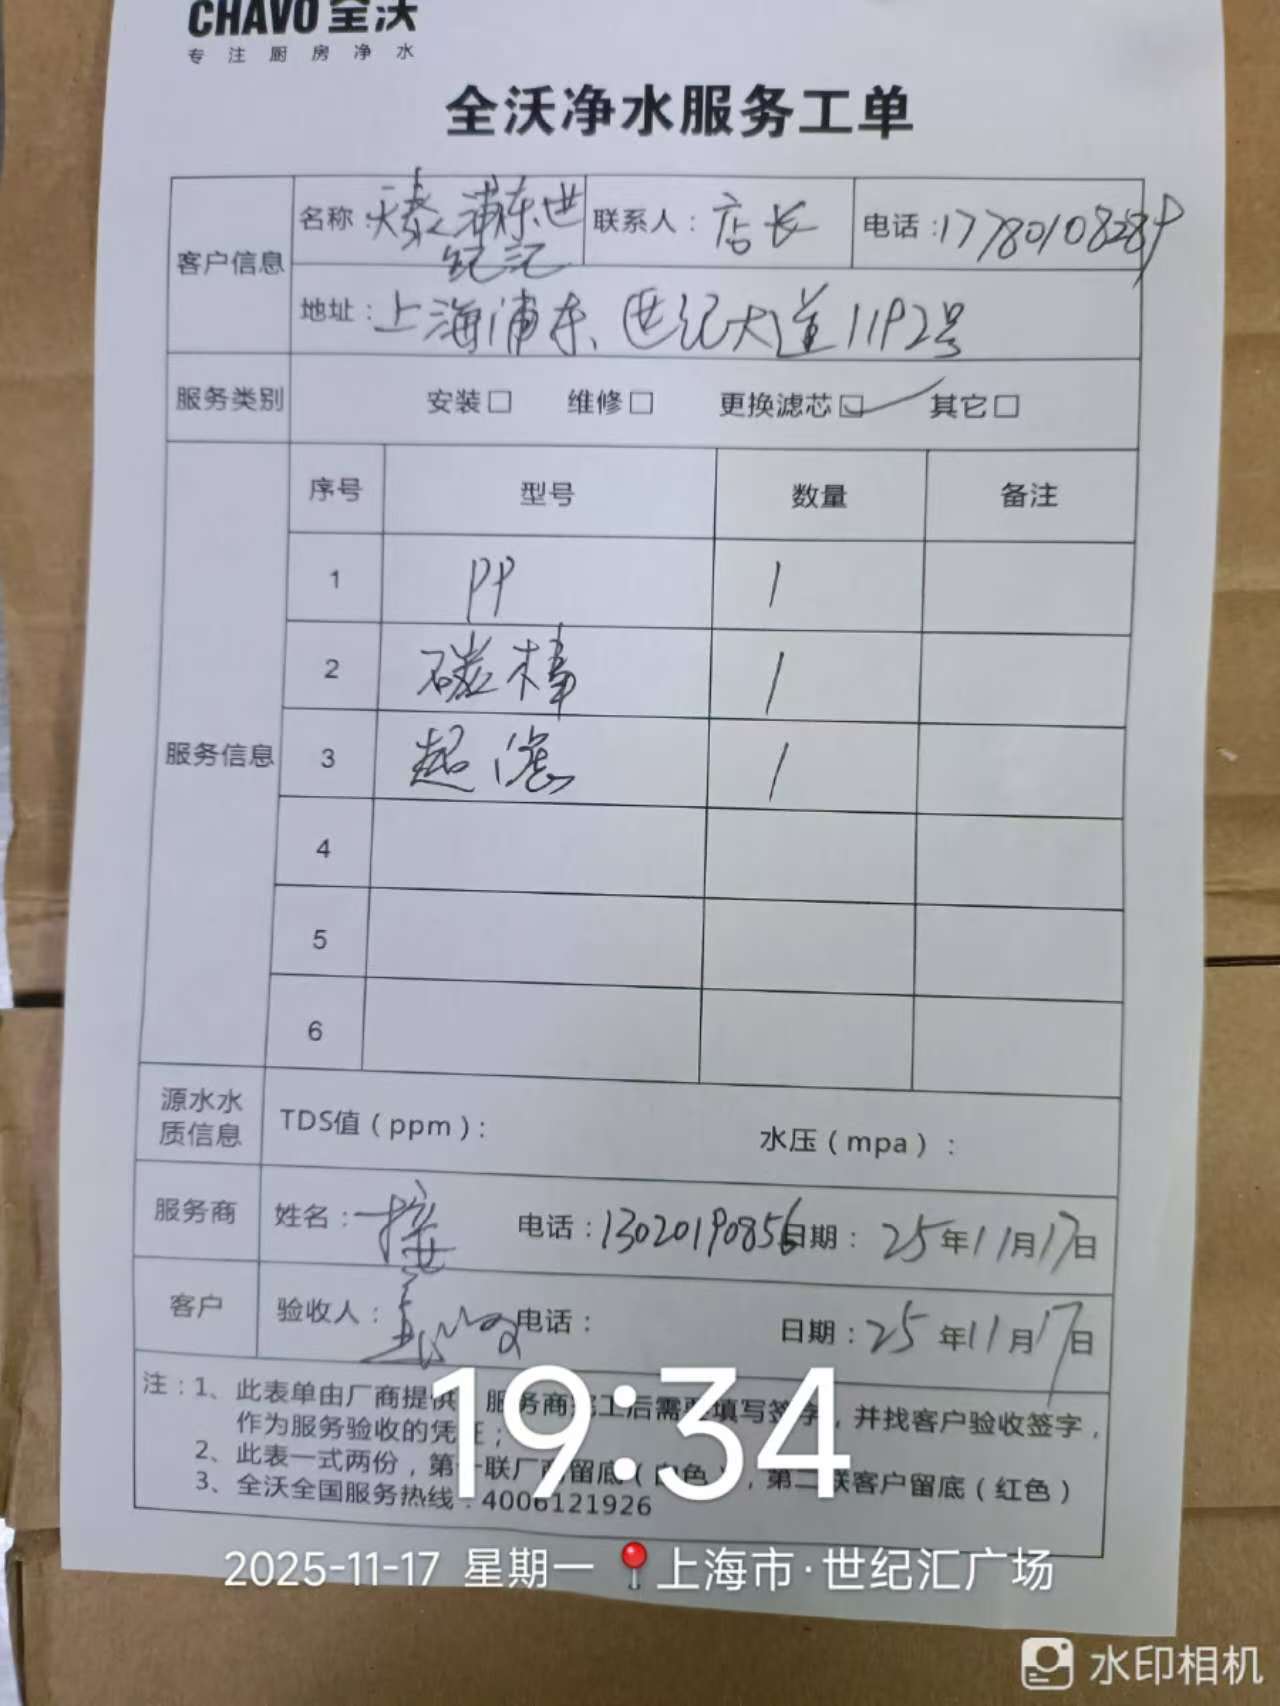 CHAVO 全沃
专注厨房净水
全沃净水服务工单
客户信息
名称：天泰 浦东世纪汇 联系人：店长 电话：
地址：上海浦东、世纪大道1192号
服务类别 安装□ 维修□ 更换滤芯☑ 其它□
服务信息
序号 型号 数量 备注
1 PP 1
2 碳棒 1
3 超滤 1
4
5
6
源水水质信息 TDS值（ppm）： 水压（mpa）：
服务商 姓名： 电话：13020190856 日期：25年11月17日
客户 验收人： 电话： 日期：25年11月17日
注：1、此表单由厂商提供，服务商完工后需要填写签字，并找客户验收签字，
作为服务验收的凭证；
2、此表一式两份，第一联厂商留底（白色），第二联客户留底（红色）
3、全沃全国服务热线：4006121926
19:34
2025-11-17 星期一 上海市·世纪汇广场
水印相机